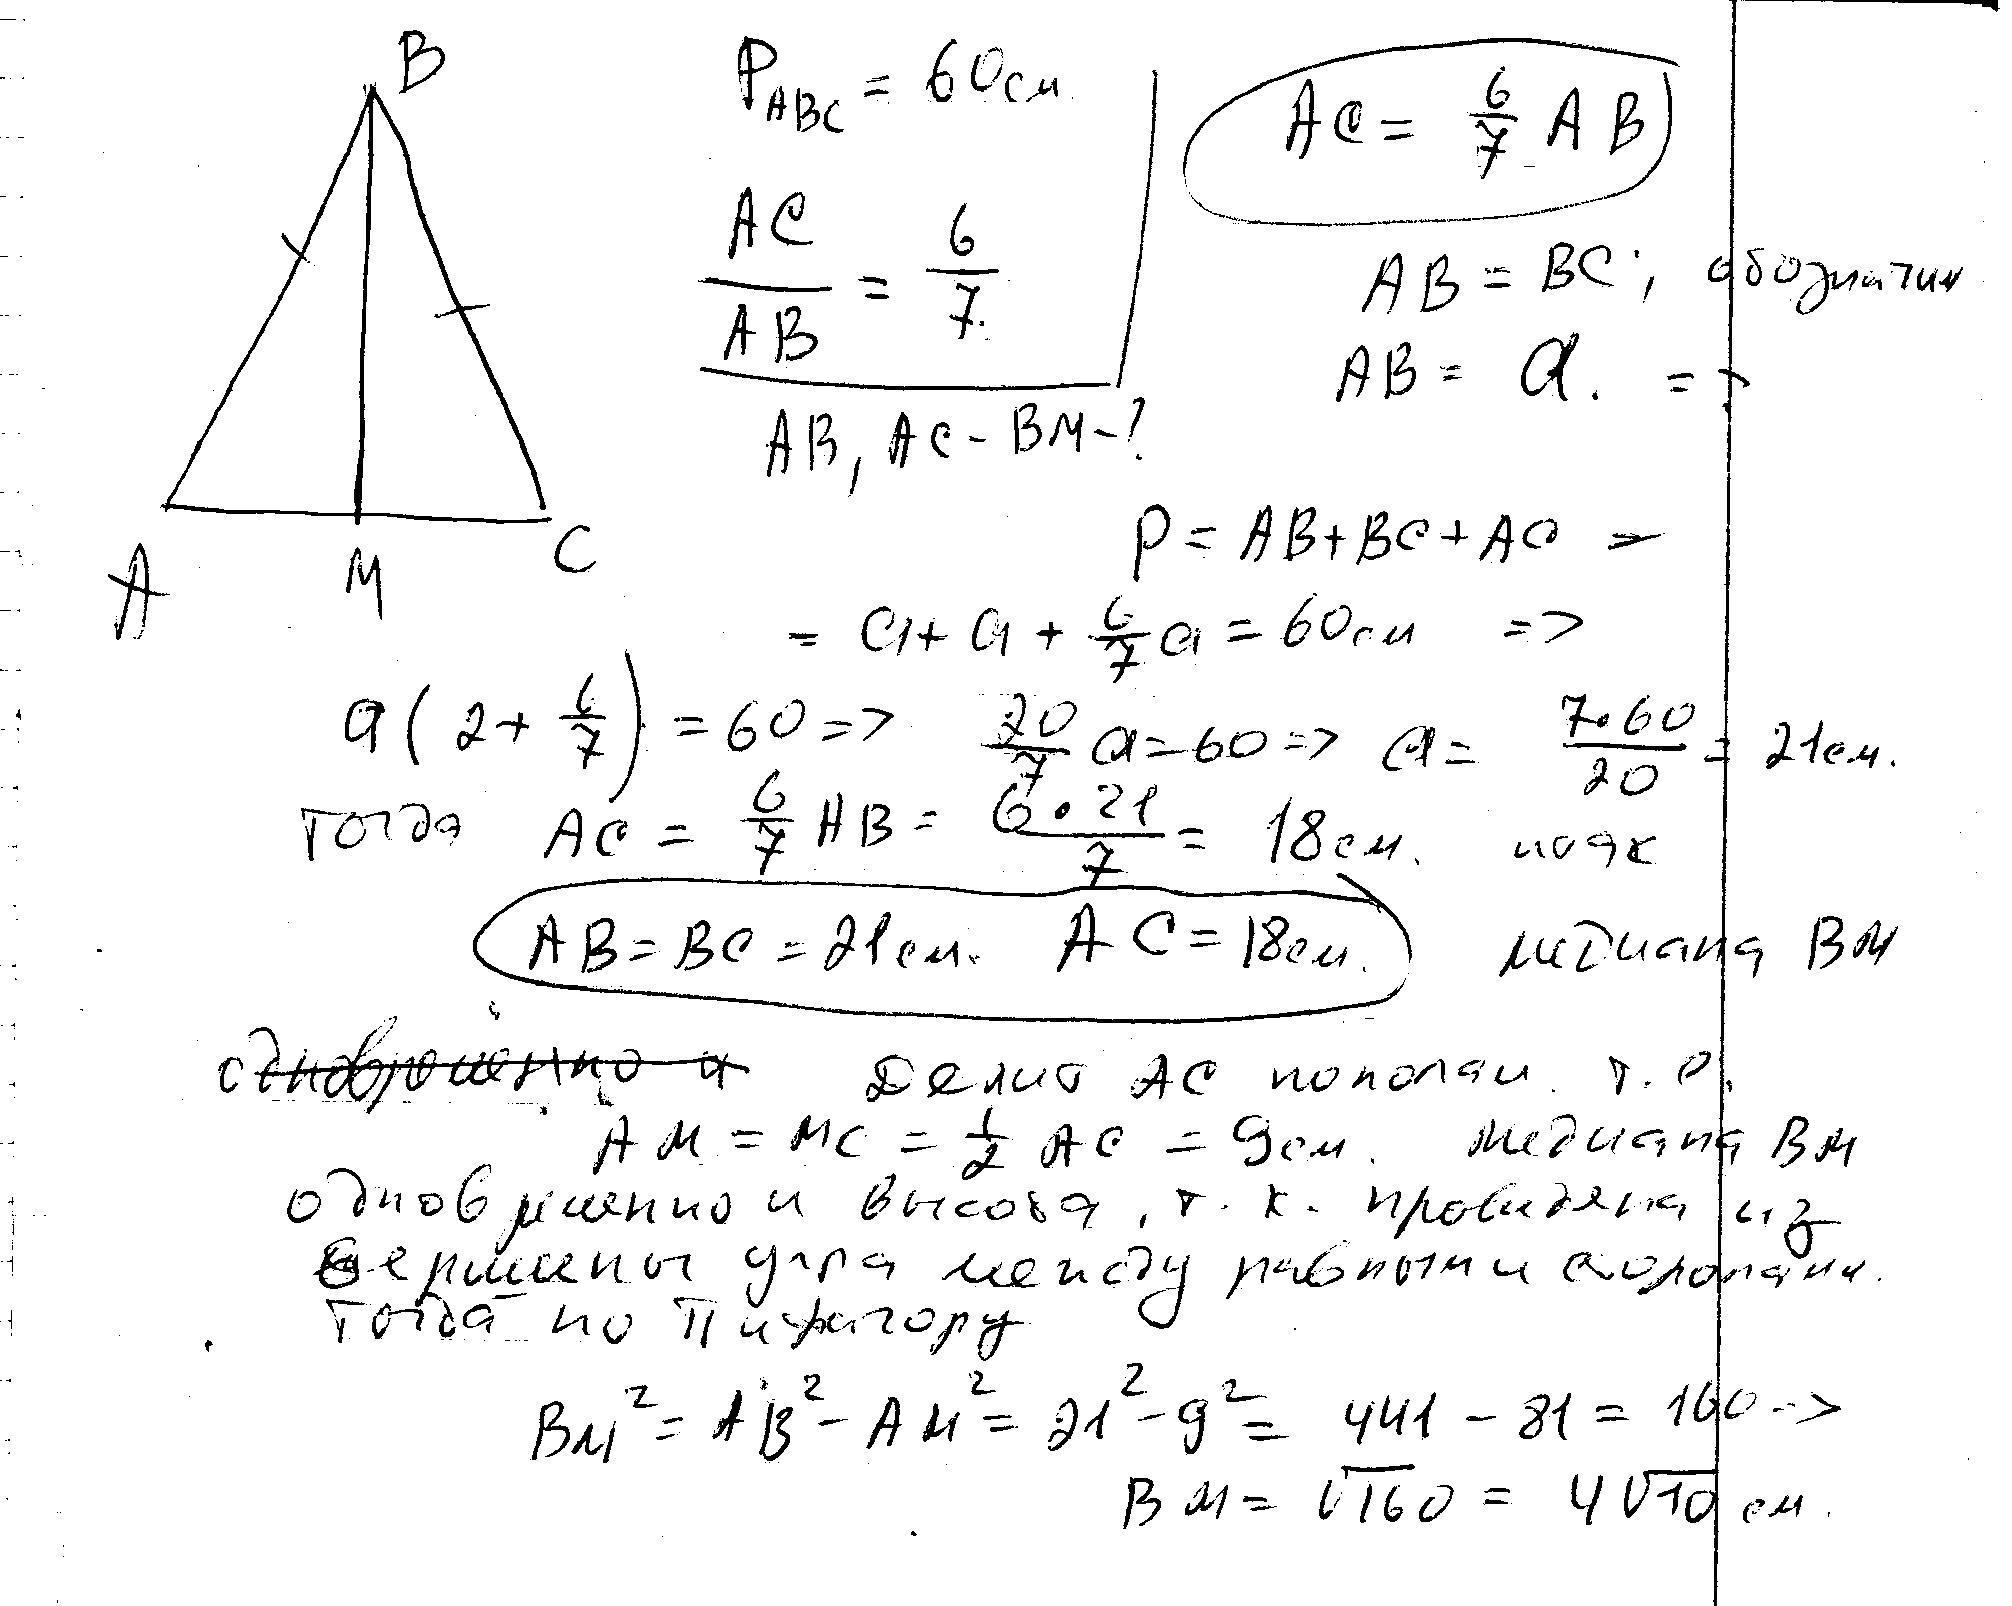 B
A
M
C
P_ABC = 60см
AC/AB = 6/7
AB, AC - BM - ?
AC = 6/7 AB
AB = BC; обозначим
AB = a. =>
P = AB + BC + AC =
= a + a + 6/7 a = 60см =>
a(2 + 6/7) = 60 => 20/7 a = 60 => a = 7·60/20 = 21см.
тогда AC = 6/7 AB = 6·21/7 = 18см.
AB = BC = 21см. AC = 18см. медиана BM
делит AC пополам. т.е.
AM = MC = 1/2 AC = 9см. медиана BM
одновременно и высота, т.к. проведена из
вершины угла между равными сторонами.
тогда по Пифагору
BM² = AB² - AM² = 21² - 9² = 441 - 81 = 160 =>
BM = √160 = 4√10 см.